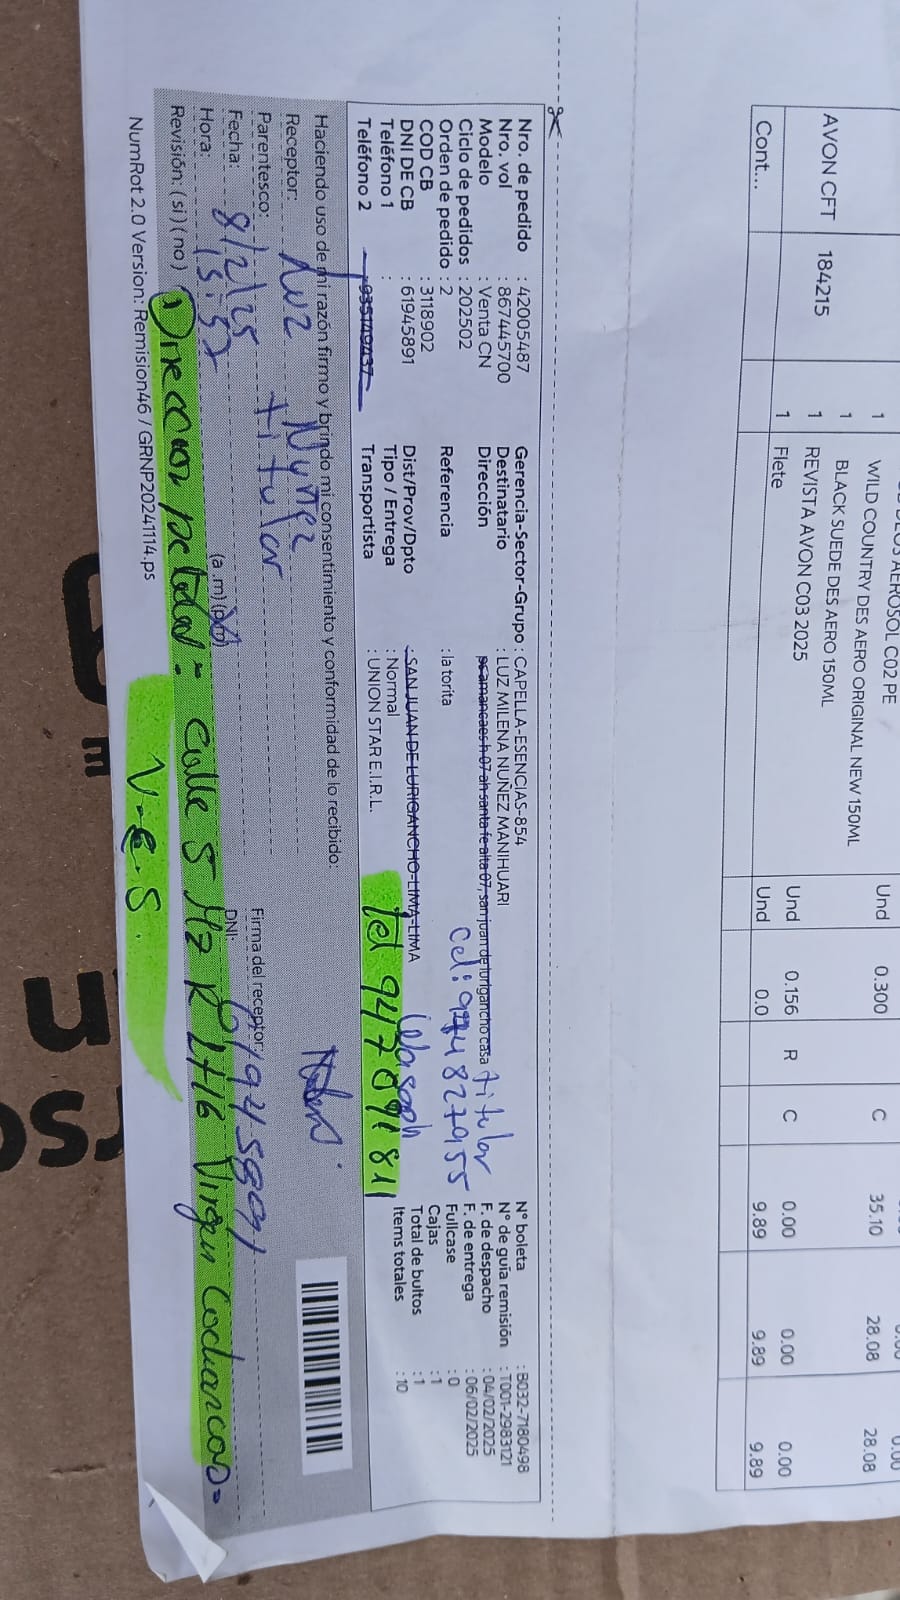 DEOS AEROSOL C02 PE
WILD COUNTRY DES AERO ORIGINAL NEW 150ML
1 Und 0.300 C 35.10 28.08 28.08
1 BLACK SUEDE DES AERO 150ML
AVON CFT 184215 1 REVISTA AVON C03 2025 Und 0.156 R C 0.00 0.00 0.00
1 Flete Und 0.0 9.89 9.89 9.89
Cont...
Nro. de pedido : 42005487
Nro. vol : 867445700
Modelo : Venta CN
Ciclo de pedidos : 202502
Orden de pedido : 2
COD CB : 3118902
DNI DE CB : 61945891
Teléfono 1 :
Teléfono 2
Gerencia-Sector-Grupo : CAPELLA-ESENCIAS-854
Destinatario : LUZ MILENA NUÑEZ MANIHUARI
Dirección
Referencia : la torita
Dist/Prov/Dpto : SAN JUAN DE LURIGANCHO-LIMA-LIMA
Tipo / Entrega : Normal
Transportista : UNION STAR E.I.R.L.
titular
Cel: 974827955
tel 947091811
N° boleta : B032-7180498
N° de guia remisión : T001-2983121
F. de despacho : 04/02/2025
F. de entrega : 06/02/2025
Fullcase : 0
Cajas : 1
Total de bultos : 1
Items totales : 10
Haciendo uso de mi razón firmo y brindo mi consentimiento y conformidad de lo recibido:
Receptor: Luz Nuñez
Parentesco: titular
Fecha: 8/2/25
Hora: 15:57 (a .m) (p.m)
Firma del receptor:
DNI: 61945891
Revisión: (si) (no)
Direccion actual: calle 5 Mz R Lt 16 Virgen Cocharcas-
V.E.S.
NumRot 2.0 Version: Remision46 / GRNP20241114.ps